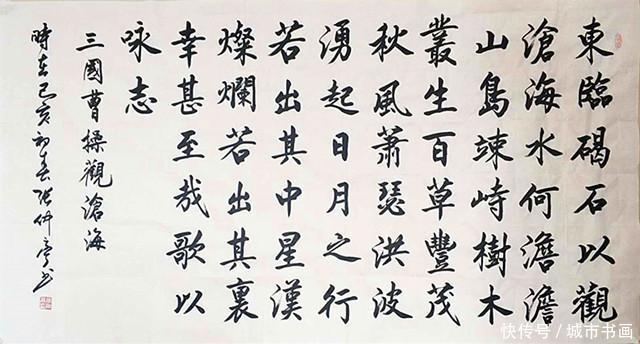 東臨碣石以觀
滄海水何澹澹
山島竦峙樹木
叢生百草豐茂
秋風蕭瑟洪波
湧起日月之行
若出其中星漢
燦爛若出其裏
幸甚至哉歌以
咏志
三國曹操觀滄海
時在己亥初春
快传号/城市书画